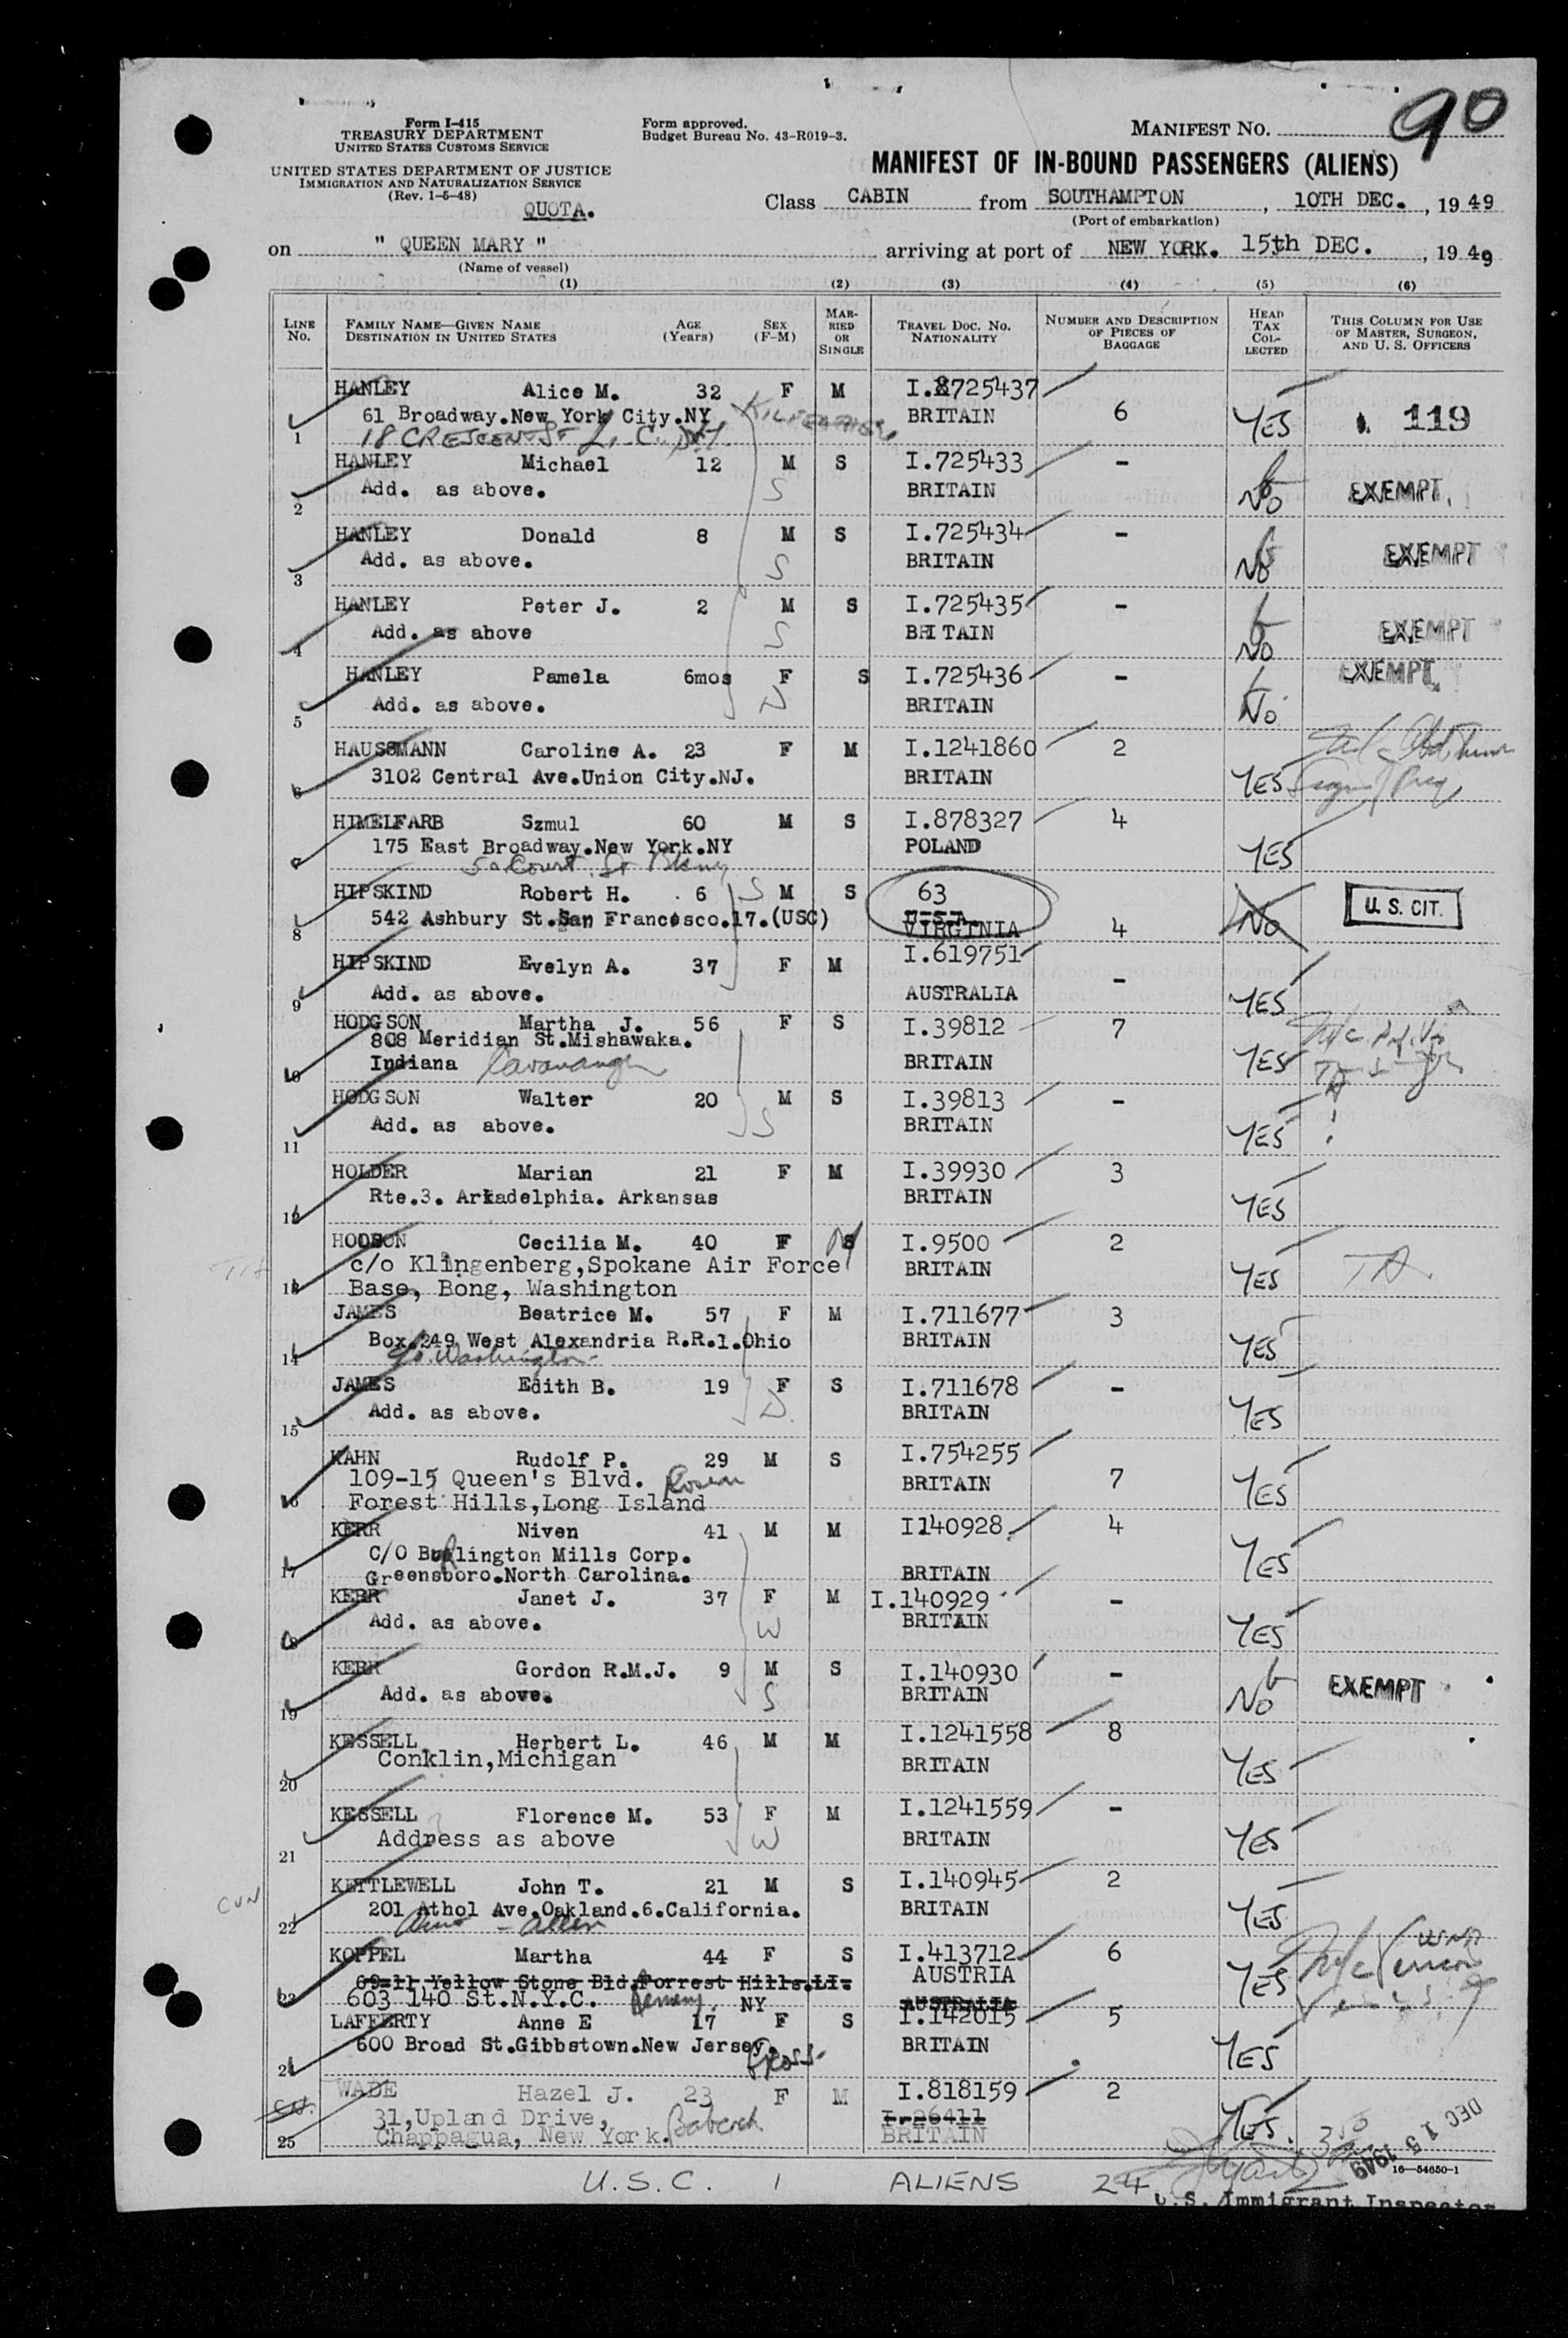 90
Form I-415
TREASURY DEPARTMENT
UNITED STATES CUSTOMS SERVICE
UNITED STATES DEPARTMENT OF JUSTICE
IMMIGRATION AND NATURALIZATION SERVICE
(Rev. 1-5-48)
QUOTA.
Form approved.
Budget Bureau No. 43-R019-3.
MANIFEST NO.
MANIFEST OF IN-BOUND PASSENGERS (ALIENS)
Class CABIN from SOUTHAMPTON, 10TH DEC., 1949
(Port of embarkation)
on " QUEEN MARY " arriving at port of NEW YORK. 15th DEC., 1949
(Name of vessel)
(1) (2) (3) (4) (5) (6)
LINE NO. FAMILY NAME—GIVEN NAME DESTINATION IN UNITED STATES AGE (Years) SEX (F-M) MARRIED OR SINGLE TRAVEL DOC. NO. NATIONALITY NUMBER AND DESCRIPTION OF PIECES OF BAGGAGE HEAD TAX COLLECTED THIS COLUMN FOR USE OF MASTER, SURGEON, AND U. S. OFFICERS
HANLEY Alice M. 32 F M I.8725437
61 Broadway.New York City.NY BRITAIN 6 YES 119
1 18 CRESCENT ST L. C.
HANLEY Michael 12 M S I.725433 -
2 Add. as above. S BRITAIN No EXEMPT
HANLEY Donald 8 M S I.725434 -
3 Add. as above. S BRITAIN No EXEMPT
HANLEY Peter J. 2 M S I.725435 -
4 Add. as above S BRITAIN No EXEMPT
HANLEY Pamela 6mos F S I.725436 -
5 Add. as above. D BRITAIN No EXEMPT
HAUSSMANN Caroline A. 23 F M I.1241860 2
6 3102 Central Ave.Union City.NJ. BRITAIN YES
HIMELFARB Szmul 60 M S I.878327 4
7 175 East Broadway.New York.NY POLAND YES
Court St
HIPSKIND Robert H. 6 S M S 63
8 542 Ashbury St.San Francosco.17.(USC) U.S.A. VIRGINIA 4 No U. S. CIT.
HIPSKIND Evelyn A. 37 F M I.619751 -
9 Add. as above. AUSTRALIA YES
HODGSON Martha J. 56 F S I.39812 7
808 Meridian St.Mishawaka.
10 Indiana Cavanaugh BRITAIN YES
HODGSON Walter 20 M S I.39813 -
11 Add. as above. S BRITAIN YES
HOLDER Marian 21 F M I.39930 3
12 Rte.3. Arkadelphia. Arkansas BRITAIN YES
HODSON Cecilia M. 40 F M I.9500 2
c/o Klingenberg,Spokane Air Force BRITAIN YES TA.
13 Base, Bong, Washington
JAMES Beatrice M. 57 F M I.711677 3
Box.249 West Alexandria R.R.1.Ohio BRITAIN YES
14 Washington
JAMES Edith B. 19 F S I.711678 -
15 Add. as above. D. BRITAIN YES
KAHN Rudolf P. 29 M S I.754255
109-15 Queen's Blvd. BRITAIN 7 YES
16 Forest Hills,Long Island
KERR Niven 41 M M I140928. 4
C/O Burlington Mills Corp.
17 Greensboro.North Carolina. BRITAIN YES
KERR Janet J. 37 F M I.140929 -
18 Add. as above. W BRITAIN YES
KERR Gordon R.M.J. 9 M S I.140930 -
19 Add. as above. S BRITAIN No EXEMPT
KESSELL Herbert L. 46 M M I.1241558 8
20 Conklin,Michigan BRITAIN YES
KESSELL Florence M. 53 F M I.1241559 -
21 Address as above W BRITAIN YES
KETTLEWELL John T. 21 M S I.140945 2
201 Athol Ave.Oakland.6.California. BRITAIN YES
22 Allen
KOPPEL Martha 44 F S I.413712 6
69-11 Yellow Stone Bld.Forrest Hills.LI. AUSTRIA YES
23 603 140 St.N.Y.C. NY AUSTRALIA
LAFFERTY Anne E 17 F S I.142015 5
24 600 Broad St.Gibbstown.New Jersey. BRITAIN YES
Gross
WADE Hazel J. 23 F M I.818159 2
31,Upland Drive, I.26411
25 Chappaqua, New York. Babcock BRITAIN YES.
DEC 15 1949
16—54650-1
U.S.C. 1 ALIENS 24
U.S. Immigrant Inspector